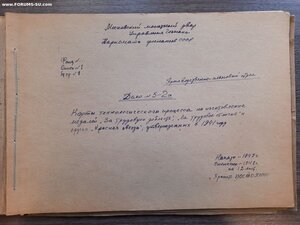 © FORUMS-SU.com
Московский монетный двор
Управления Гознака
Наркомата финансов СССР
Фонд №
Опись № 1
Производственно-плановый отдел
Дело № 5-2а
Карты технологического процесса на изготовление
медалей „За трудовую доблесть", „За трудовое отличие" и
ордена „Красная звезда", утвержденных в 1941 году
Начато - 1941 г.
на 12 лист
Хранить постоянно